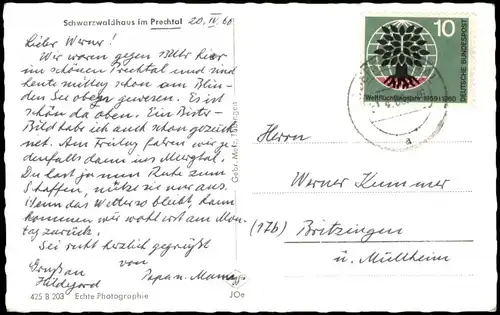 Schwarzwaldhaus im Prechtal 20. IV. 60
Lieber Werner!
Wir waren gegen Uhr hier
im schönen Prechtal und sind
heute mittag schon am Blin-
den See oben gewesen. Es ist
schön da oben. Ein
Bild habe ich auch schon gezeich-
net. Am Freitag fahren wir je-
denfalls dann ins
Du hast ja nun Ruhe zum
Schaffen, nütze sie nur aus.
Wenn das Wetter so bleibt, dann
kommen wir wohl erst am Mon-
tag zurück.
Sei recht herzlich gegrüßt
Gruß an von
Hildegard Papa u. Mama
425 B 203 Echte Photographie JOe
Gebr. Metz, Tübingen
10
DEUTSCHE BUNDESPOST
Weltflüchtlingsjahr 1959/1960
a
Herrn
Werner Kummer
(17b) Britzingen
ü. Müllheim